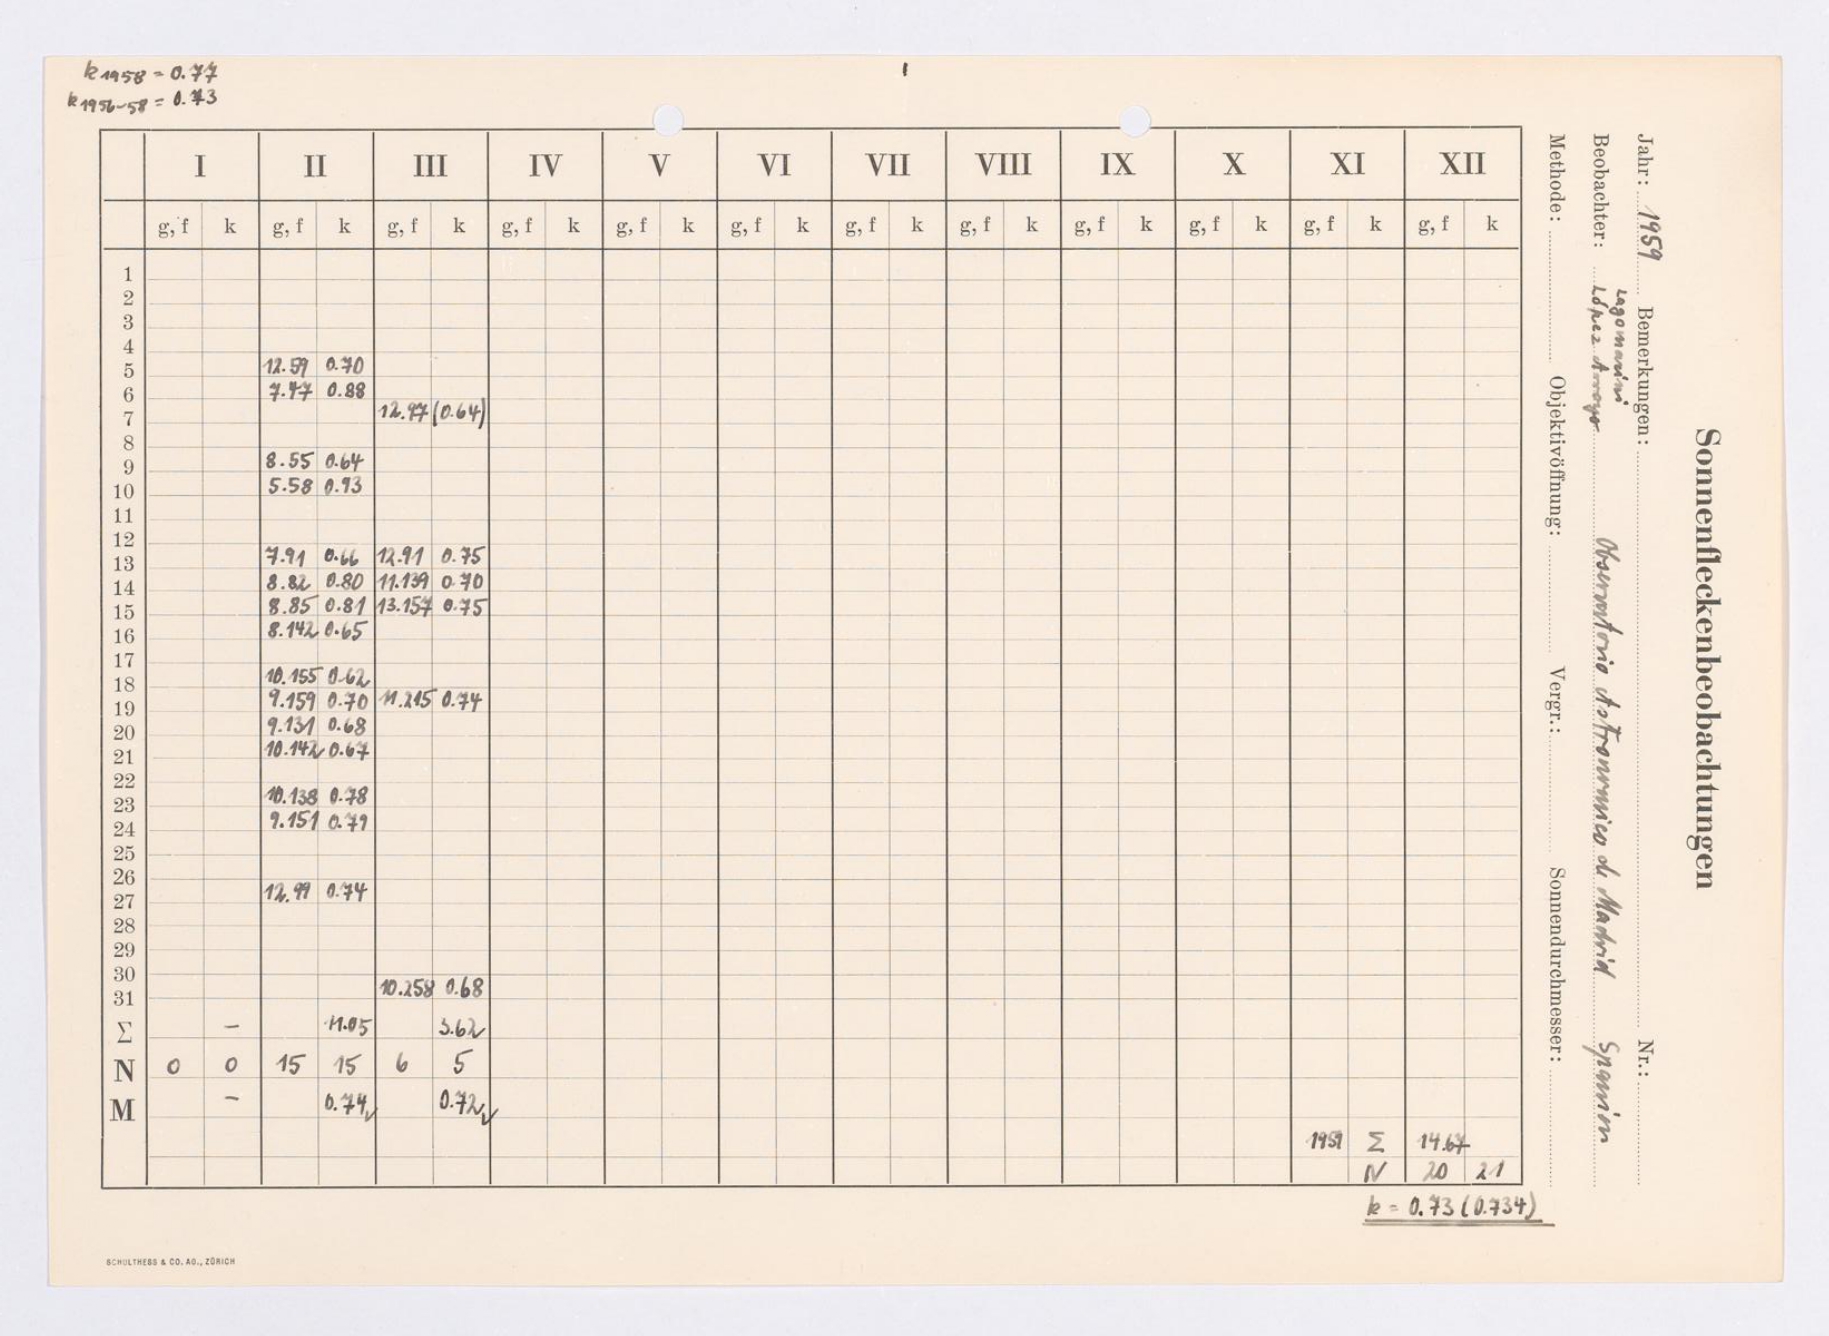 k 1958 = 0.77
k 1956-58 = 0.73
Sonnenfleckenbeobachtungen
Jahr: 1959 Bemerkungen: Nr.:
Lagomarsini
Beobachter: López Arroyo Observatorio Astronomico de Madrid Spanien
Methode: Objektivöffnung: Vergr.: Sonnendurchmesser:
I II III IV V VI VII VIII IX X XI XII
g, f k g, f k g, f k g, f k g, f k g, f k g, f k g, f k g, f k g, f k g, f k g, f k
1
2
3
4
5 12.59 0.70
6 7.47 0.88
7 12.97 (0.64)
8
9 8.55 0.64
10 5.58 0.93
11
12
13 7.91 0.66 12.91 0.75
14 8.82 0.80 11.139 0.70
15 8.85 0.81 13.157 0.75
16 8.142 0.65
17
18 10.155 0.62
19 9.159 0.70 11.215 0.74
20 9.131 0.68
21 10.142 0.67
22
23 10.138 0.78
24 9.151 0.79
25
26
27 12.99 0.74
28
29
30
31 10.258 0.68
Σ – 11.05 3.62
N 0 0 15 15 6 5
M – 0.74 0.72
1959 Σ 14.67
N 20 21
k = 0.73 (0.734)
SCHULTHESS & CO. AG., ZÜRICH